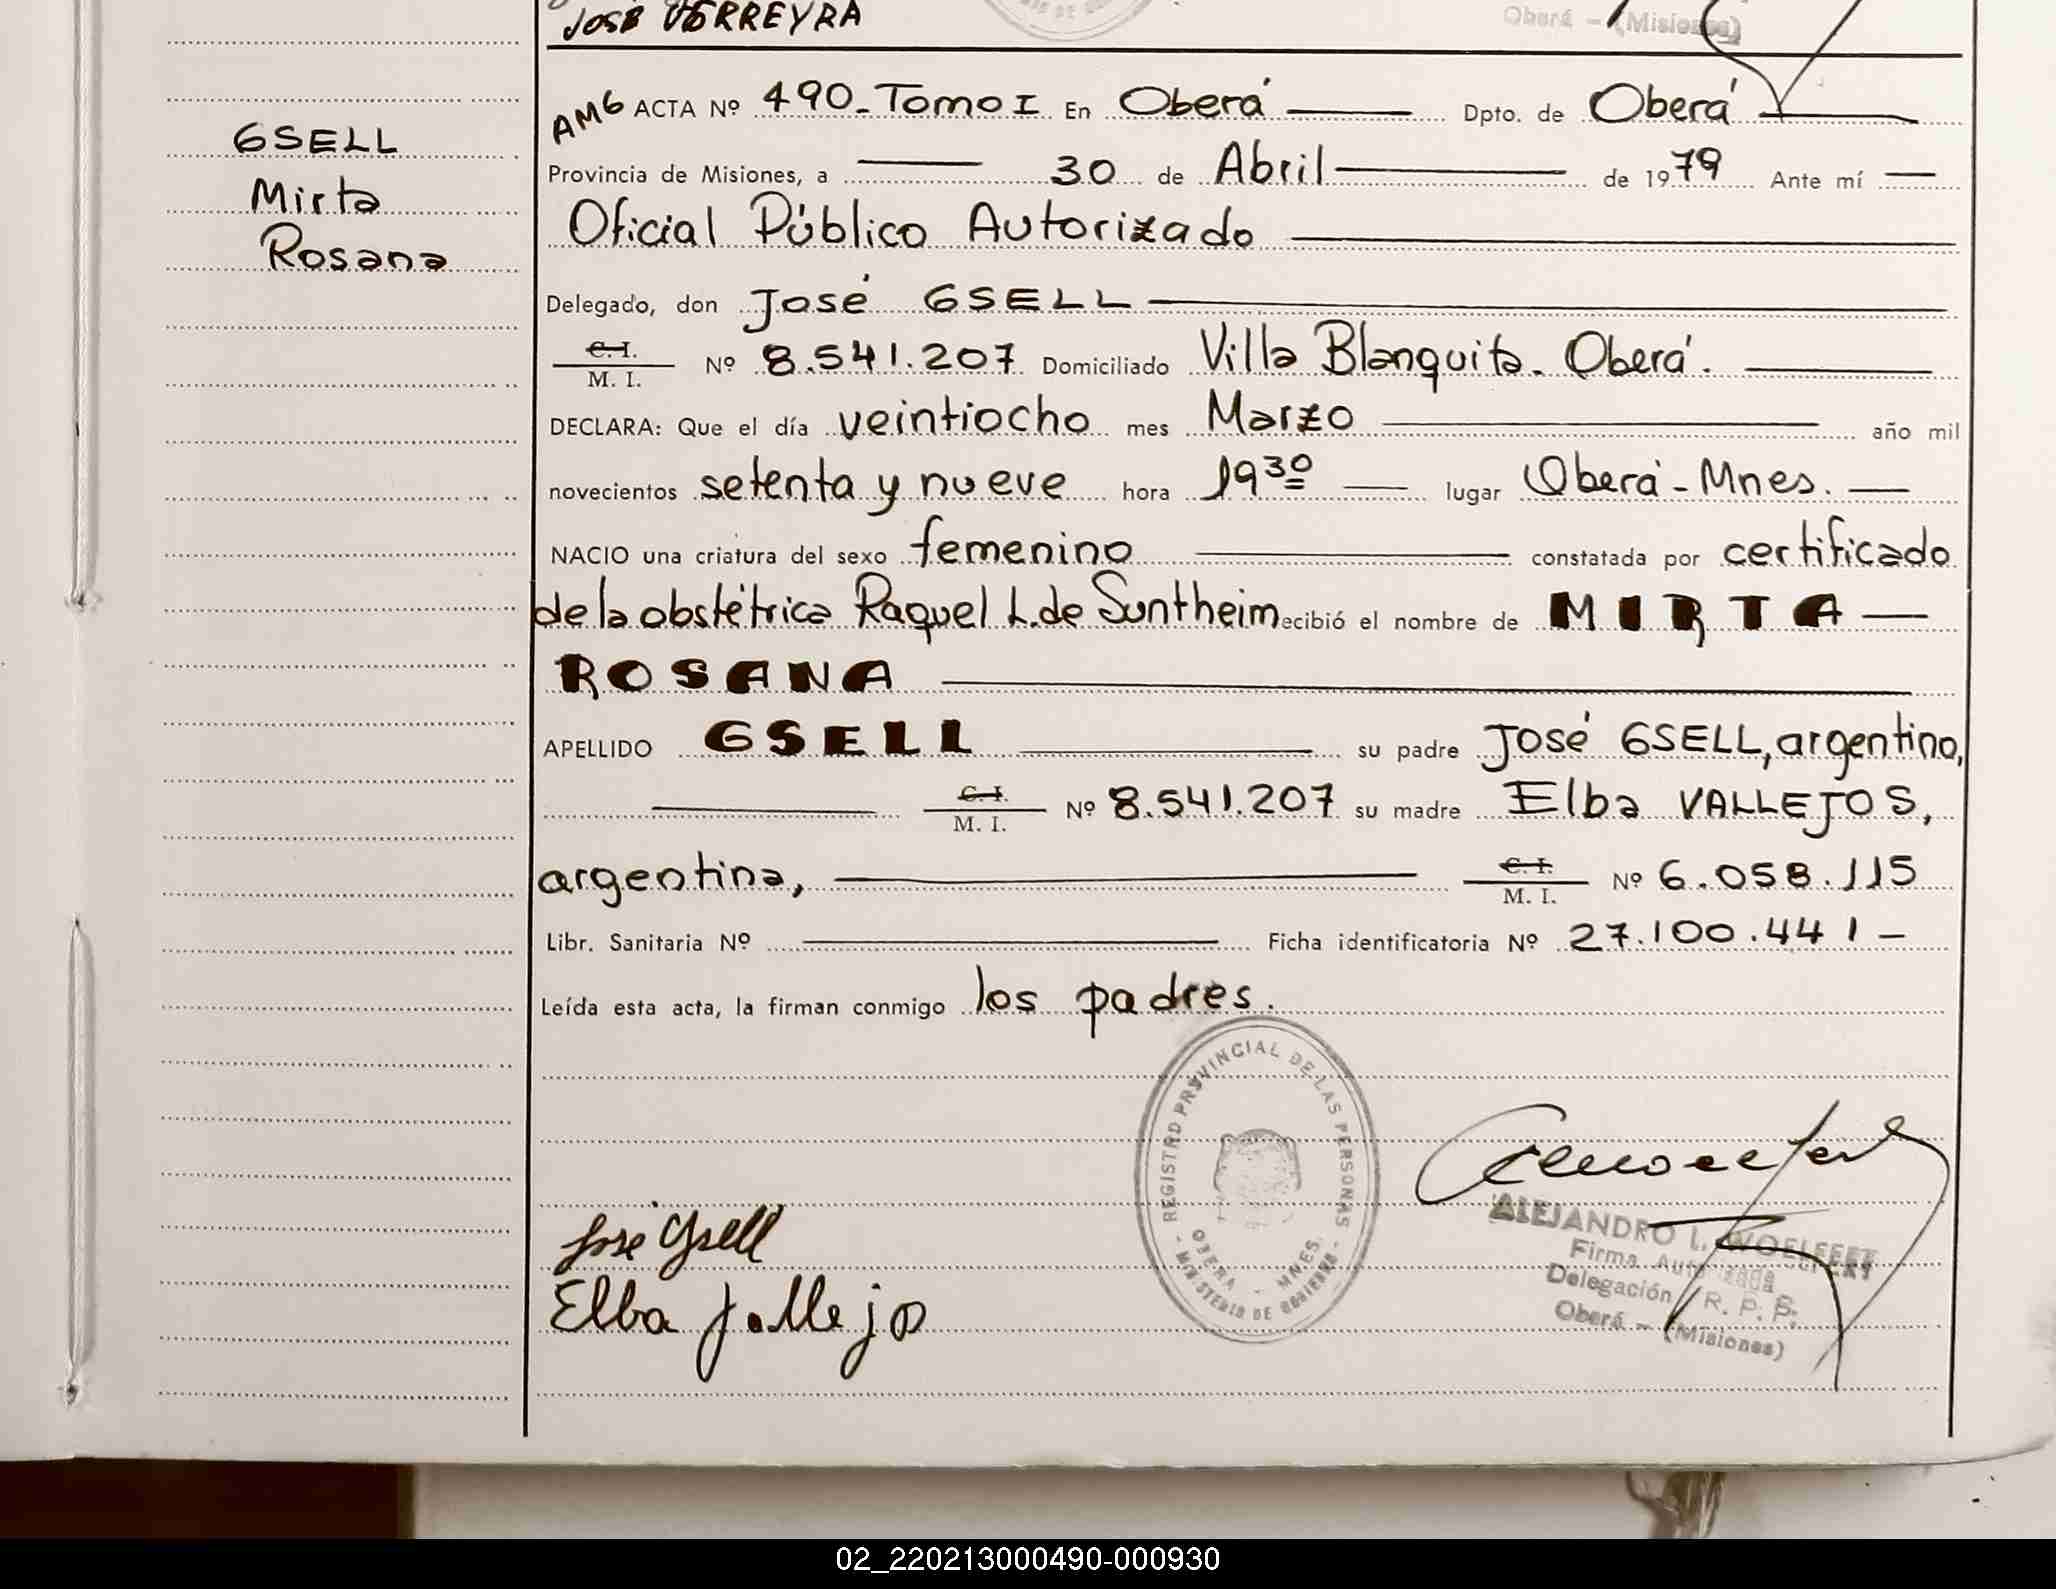 José FERREYRA
Oberá - (Misiones)
GSELL
Mirta
Rosana
AMG ACTA Nº 490-Tomo I En Oberá Dpto. de Oberá
Provincia de Misiones, a 30 de Abril de 1979 Ante mí
Oficial Público Autorizado
Delegado, don José GSELL
C. I. / M. I. Nº 8.541.207 Domiciliado Villa Blanquita. Oberá.
DECLARA: Que el día veintiocho mes Marzo año mil
novecientos setenta y nueve hora 19 30 lugar Oberá - Mnes.
NACIO una criatura del sexo femenino constatada por certificado
de la obstétrica Raquel L. de Suntheim ecibió el nombre de MIRTA
ROSANA
APELLIDO GSELL su padre José GSELL, argentino,
C. I. / M. I. Nº 8.541.207 su madre Elba VALLEJOS,
argentina, C. I. / M. I. Nº 6.058.115
Libr. Sanitaria Nº Ficha identificatoria Nº 27.100.441 -
Leída esta acta, la firman conmigo los padres.
REGISTRO PROVINCIAL DE LAS PERSONAS
OBERA - MNES.
- MINISTERIO DE GOBIERNO -
José Gsell
Elba Vallejos
ALEJANDRO I. WOELFERT
Firma Autorizada
Delegación R. P. P.
Oberá - (Misiones)
02_220213000490-000930